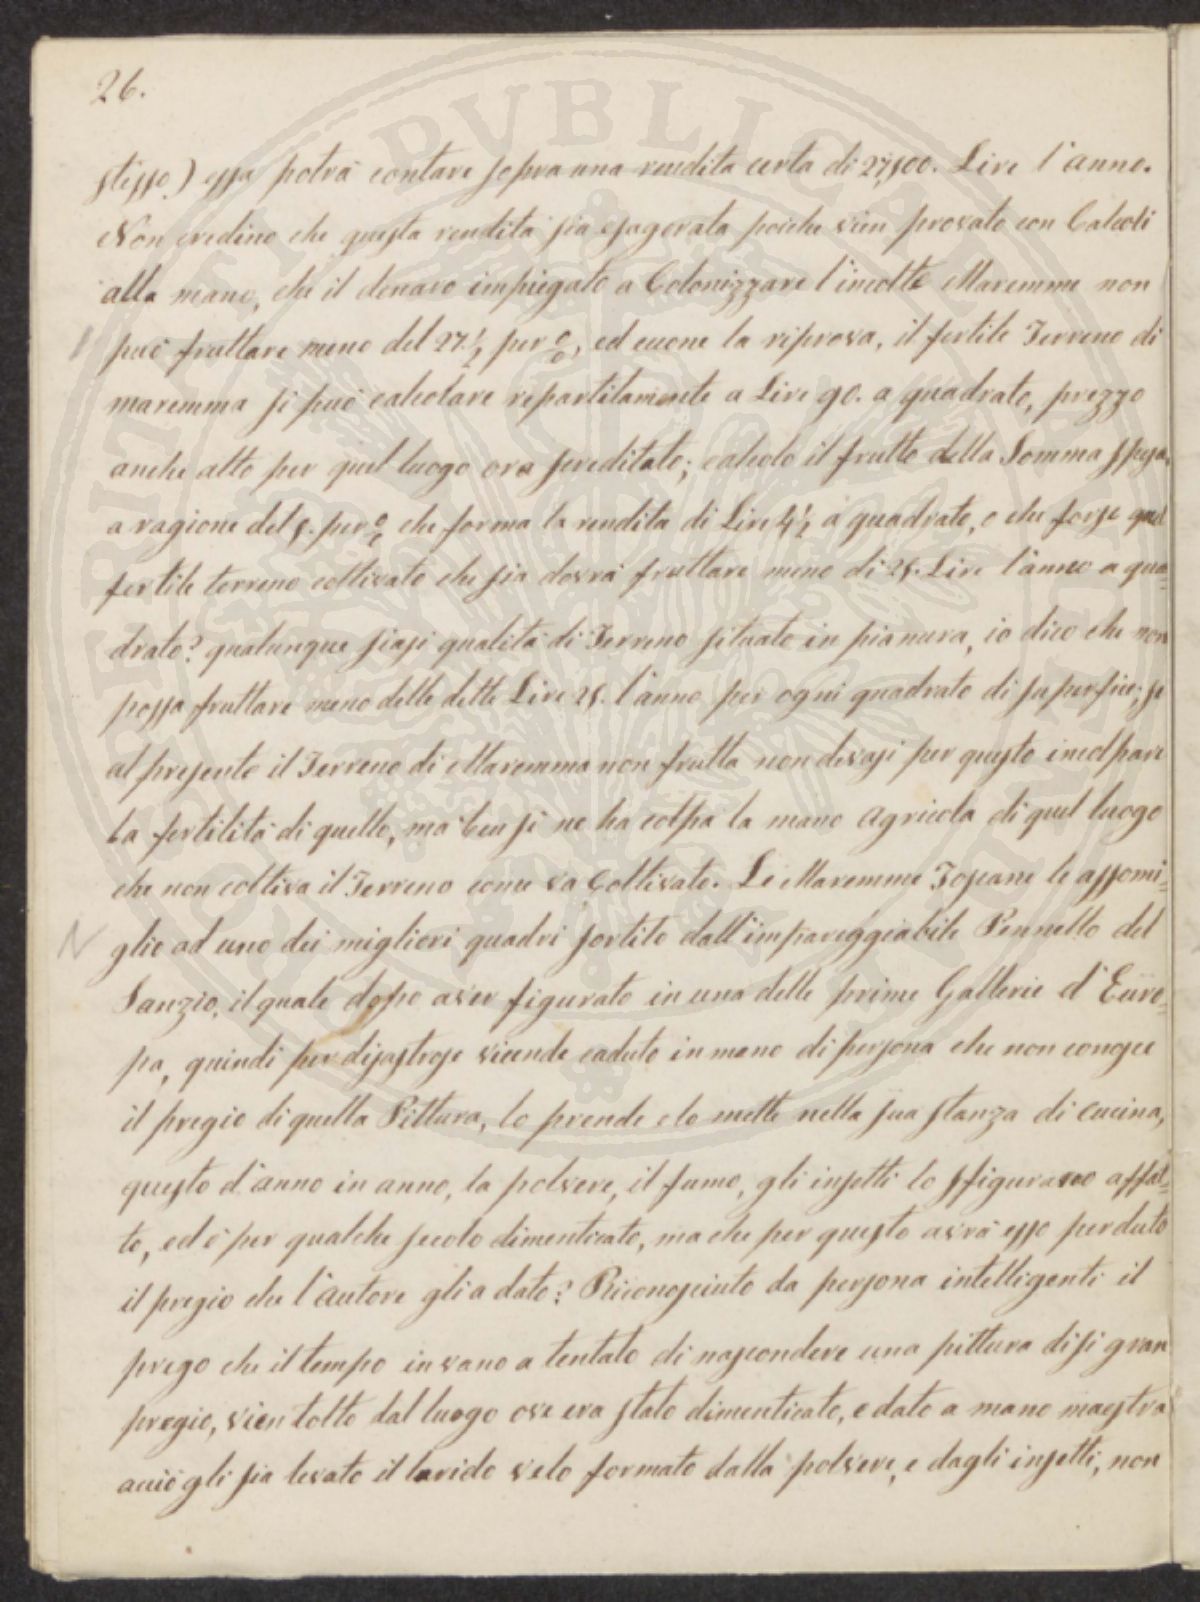 26.
stesso) essa potrà contare sopra una rendita certa di 27,500. Lire l'anno.
Non credino che questa rendita sia esagerata poiche vien provato con Calcoli
alla mano, che il denaro impiegato a Colonizzare l'incolte Maremme non
può fruttare meno del 27.½ per %, ed eccone la riprova, il fertile Terreno di
maremma si può calcolare repartitamente a Lire 90. a quadrato, prezzo
anche alto per quel luogo ora screditato; calcolo il frutto della Somma spesa,
a ragione del 5. per % che forma la rendita di Lire 4½ a quadrato, e che forse quel
fertile terreno coltivato che sia dovrà fruttare meno di 25. Lire l'anno a qua=
drato? qualunque siasi qualità di Terreno situato in pianura, io dico che non
possa fruttare meno delle dette Lire 25. l'anno per ogni quadrato di superfice; se
al presente il Terreno di Maremma non frutta non devasi per questo incolpare
la fertilità di quello, ma bensi ne ha colpa la mano agricola di quel luogo
che non coltiva il Terreno come va Coltivato. Le Maremme Toscane le assomi=
glio ad uno dei migliori quadri sortito dall'impareggiabile Pennello del
Sanzio, il quale dopo aver figurato in una delle prime Gallerie d'Euro=
pa, quindi per disastrose vicende caduto in mano di persona che non conosce
il pregio di quella Pittura, lo prende e lo mette nella sua stanza di cucina,
questo d'anno in anno, la polvere, il fumo, gli insetti lo sfigurano affat=
to, ed è per qualche secolo dimenticato, ma che per questo avrà esso perduto
il pregio che l'autore gli a dato? Riconosciuto da persona intelligente il
prego che il tempo in vano a tentato di nascondere una pittura di si gran
pregio, vien tolto dal luogo ove era stato dimenticato, e dato a mano maestra
acciò gli sia levato il lurido velo formato dalla polvere, e dagli insetti, non